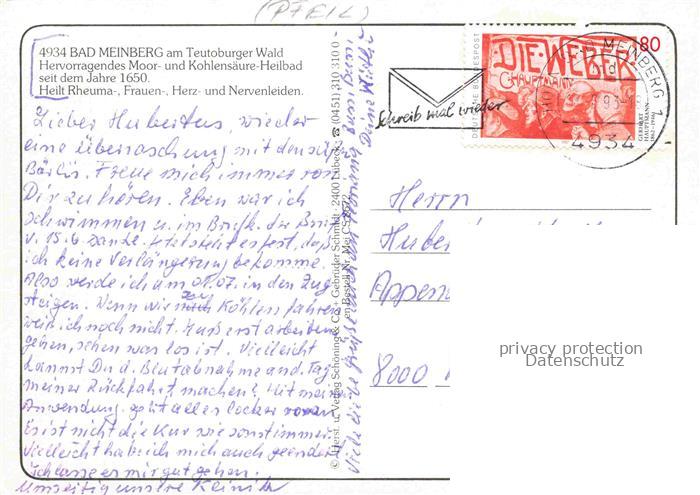 (PFEIL)
4934 BAD MEINBERG am Teutoburger Wald
Hervorragendes Moor- und Kohlensäure-Heilbad
seit dem Jahre 1650.
Heilt Rheuma-, Frauen-, Herz- und Nervenleiden.
Lieber Hubertus, wieder
eine Überraschung mit den süßen
Bärlis. Freue mich immer von
Dir zu hören. Eben war ich
schwimmen u. im Briefk. der Brief
v. 15.6. Danke. Jetzt steht es fest, daß
ich keine Verlängerung bekomme.
Also werde ich am 01.07. in den Zug
steigen. Wann wir zu Köhlers fahren
weiß ich noch nicht. Muß erst arbeiten
gehen, sehen was los ist. Vielleicht
kannst Du d. Blutabnahme and. Tag
meiner Rückfahrt machen? Mit meiner
Anwendung. geht alles locker voran
Es ist nicht die Kur wie sonst immer.
Vielleicht habe ich mich auch geändert
Umseitig unsere Klinik
Viele liebe Grüße
Deine
© Herst. u. Verlag Schöning & Co + Gebrüder Schmidt · 2400 Lübeck · ☎ (0451) 310 310 0
Bestell-Nr. Mei
DEUTSCHE BUNDESPOST
80
DIE WEBER
G. HAUPTMANN
GERHART
HAUPTMANN
1862-1946
Schreib mal wieder
MEINBERG 1
4934
Herrn
Huber
Appen
8000
privacy protection
Datenschutz